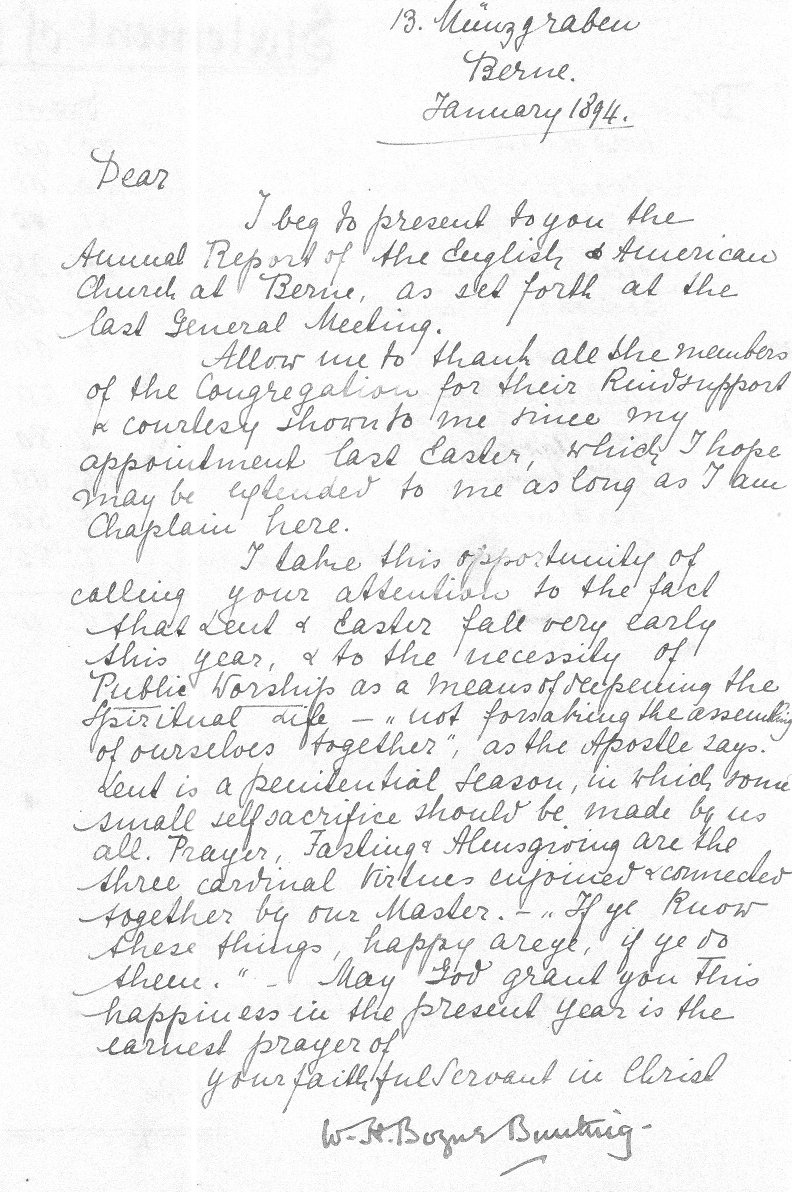 13. Münzgraben
Berne.
January 1894.
Dear
I beg to present to you the
Annual Report of the English & American
Church at Berne, as set forth at the
last General Meeting.
Allow me to thank all the members
of the Congregation for their Kind support
& courtesy shown to me since my
appointment last Easter, which I hope
may be extended to me as long as I am
Chaplain here.
I take this opportunity of
calling your attention to the fact
that Lent & Easter fall very early
this year, & to the necessity of
Public Worship as a means of deepening the
Spiritual Life – „not forsaking the assembling
of ourselves together", as the Apostle says.
Lent is a penitential season, in which some
small self sacrifice should be made by us
all. Prayer, Fasting & Almsgiving are the
three cardinal Virtues enjoined & connected
together by our Master. – „If ye Know
these things, happy are ye, if ye do
them." – May God grant you This
happiness in the present Year is the
earnest prayer of
your faithful Servant in Christ
W. H. Bunting